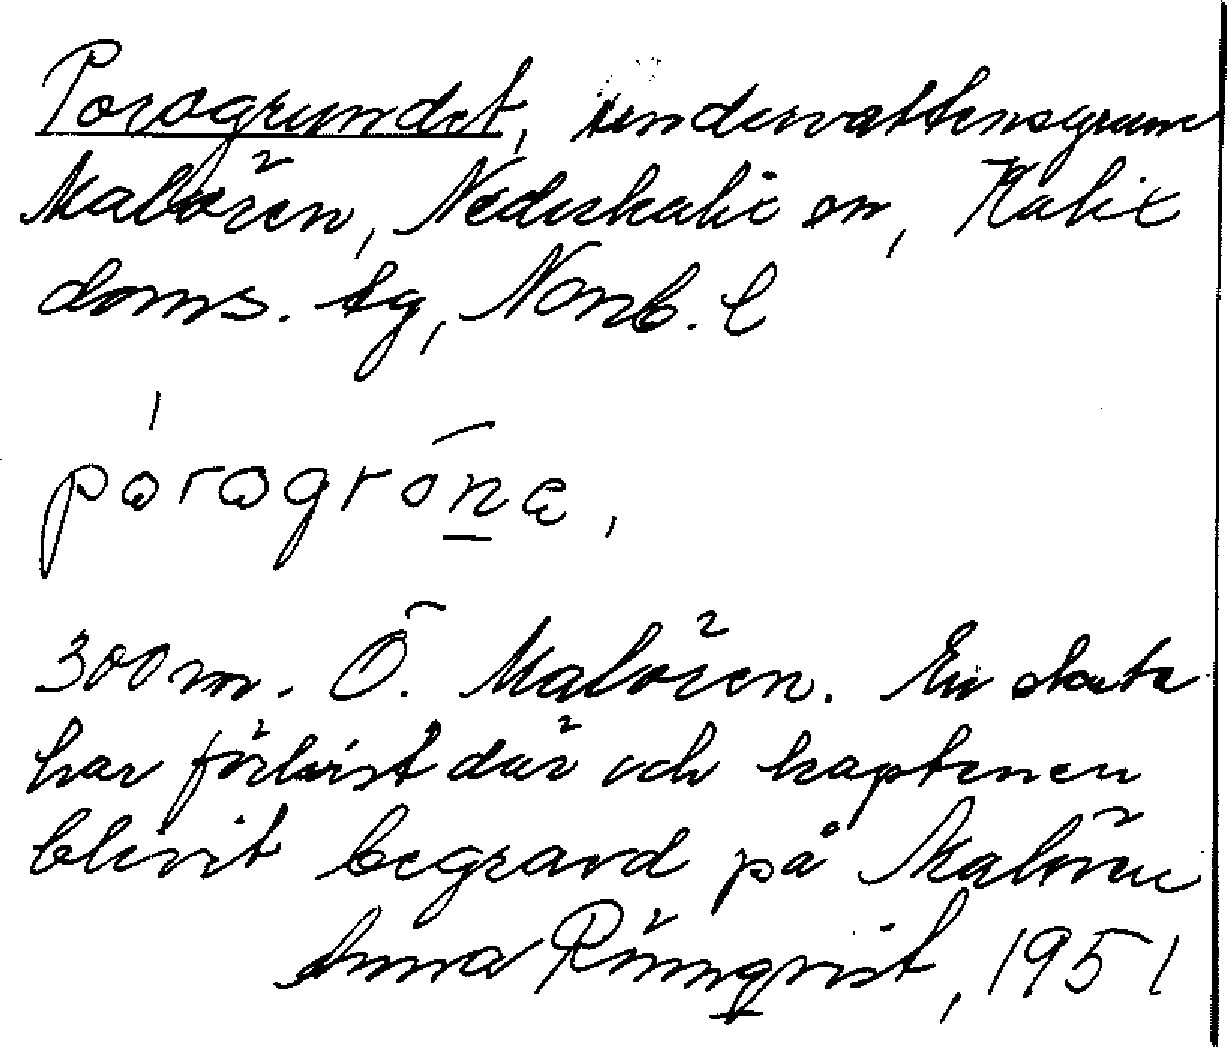 Porogrundet, undervattensgrund
Malören, Nederkalix sn, Kalix
doms. tg, Norrb. l
pòrogróna,
300 m. Ö. Malören. En skuta
har förlist där och kaptenen
blivit begravd på Malören
Anna Rönnqvist, 1951